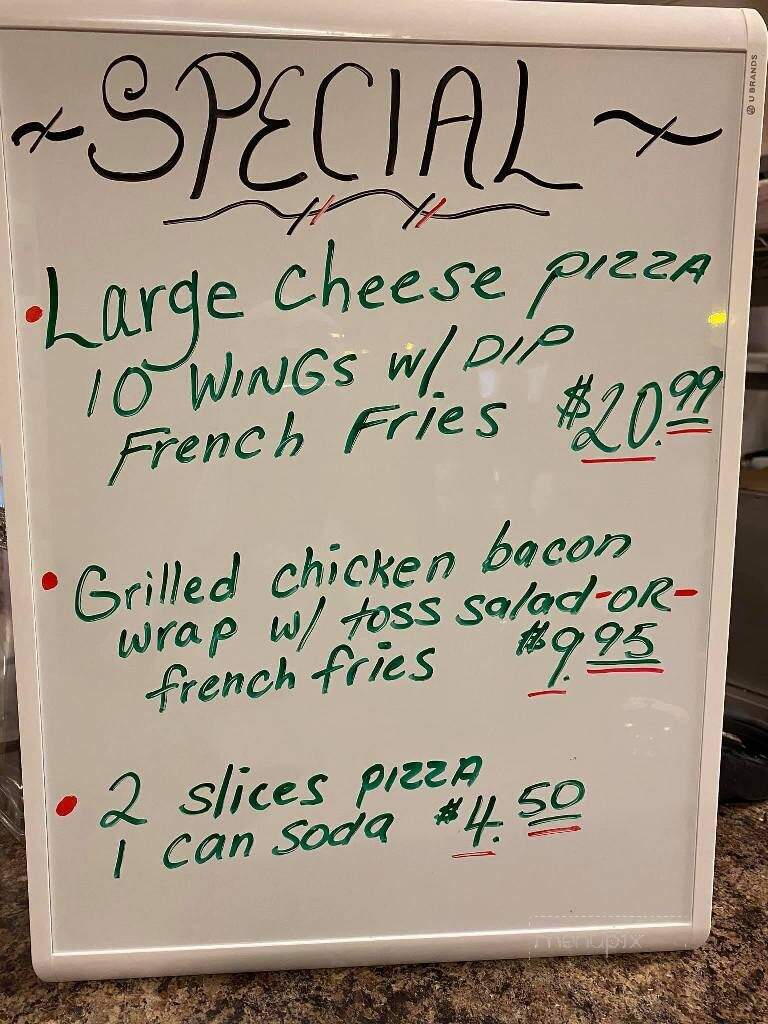 U BRANDS
~SPECIAL~
• Large cheese pizza
10 WINGS w/ DIP
French Fries $20.99
• Grilled chicken bacon
wrap w/ toss salad -OR-
french fries $9.95
• 2 slices pizza
1 can soda $4.50
menupix